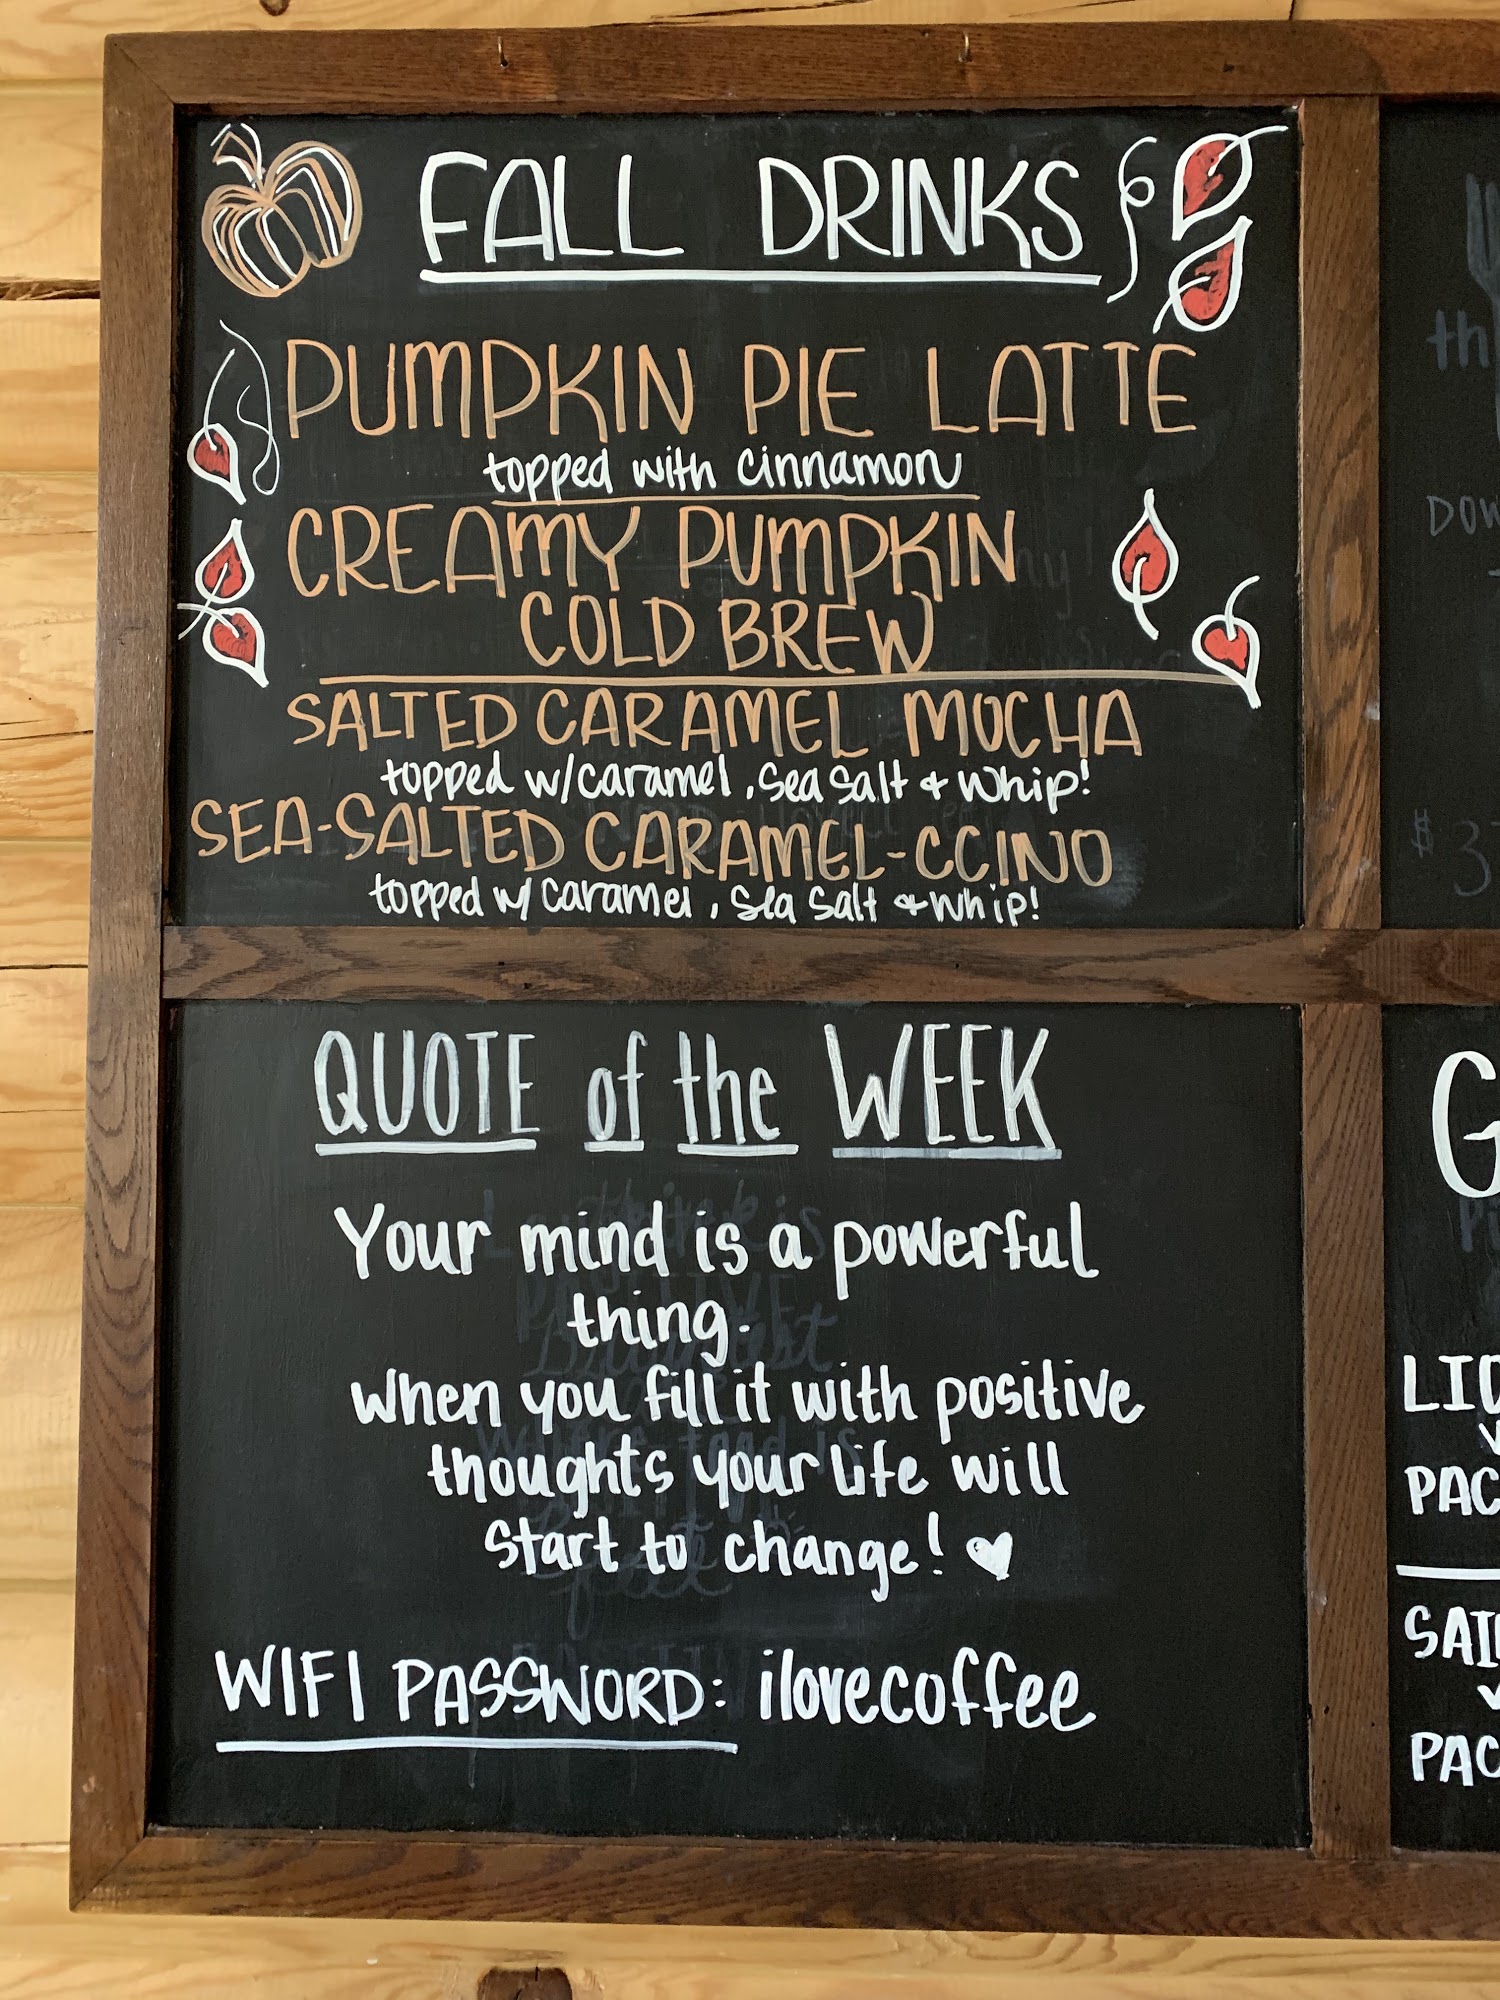 FALL DRINKS
PUMPKIN PIE LATTE
topped with cinnamon
CREAMY PUMPKIN
COLD BREW
SALTED CARAMEL MOCHA
topped w/caramel, sea salt & whip!
SEA-SALTED CARAMEL-CCINO
topped w/ caramel, sea salt & whip!
QUOTE of the WEEK
Your mind is a powerful
thing.
when you fill it with positive
thoughts your life will
start to change!
WIFI PASSWORD: ilovecoffee